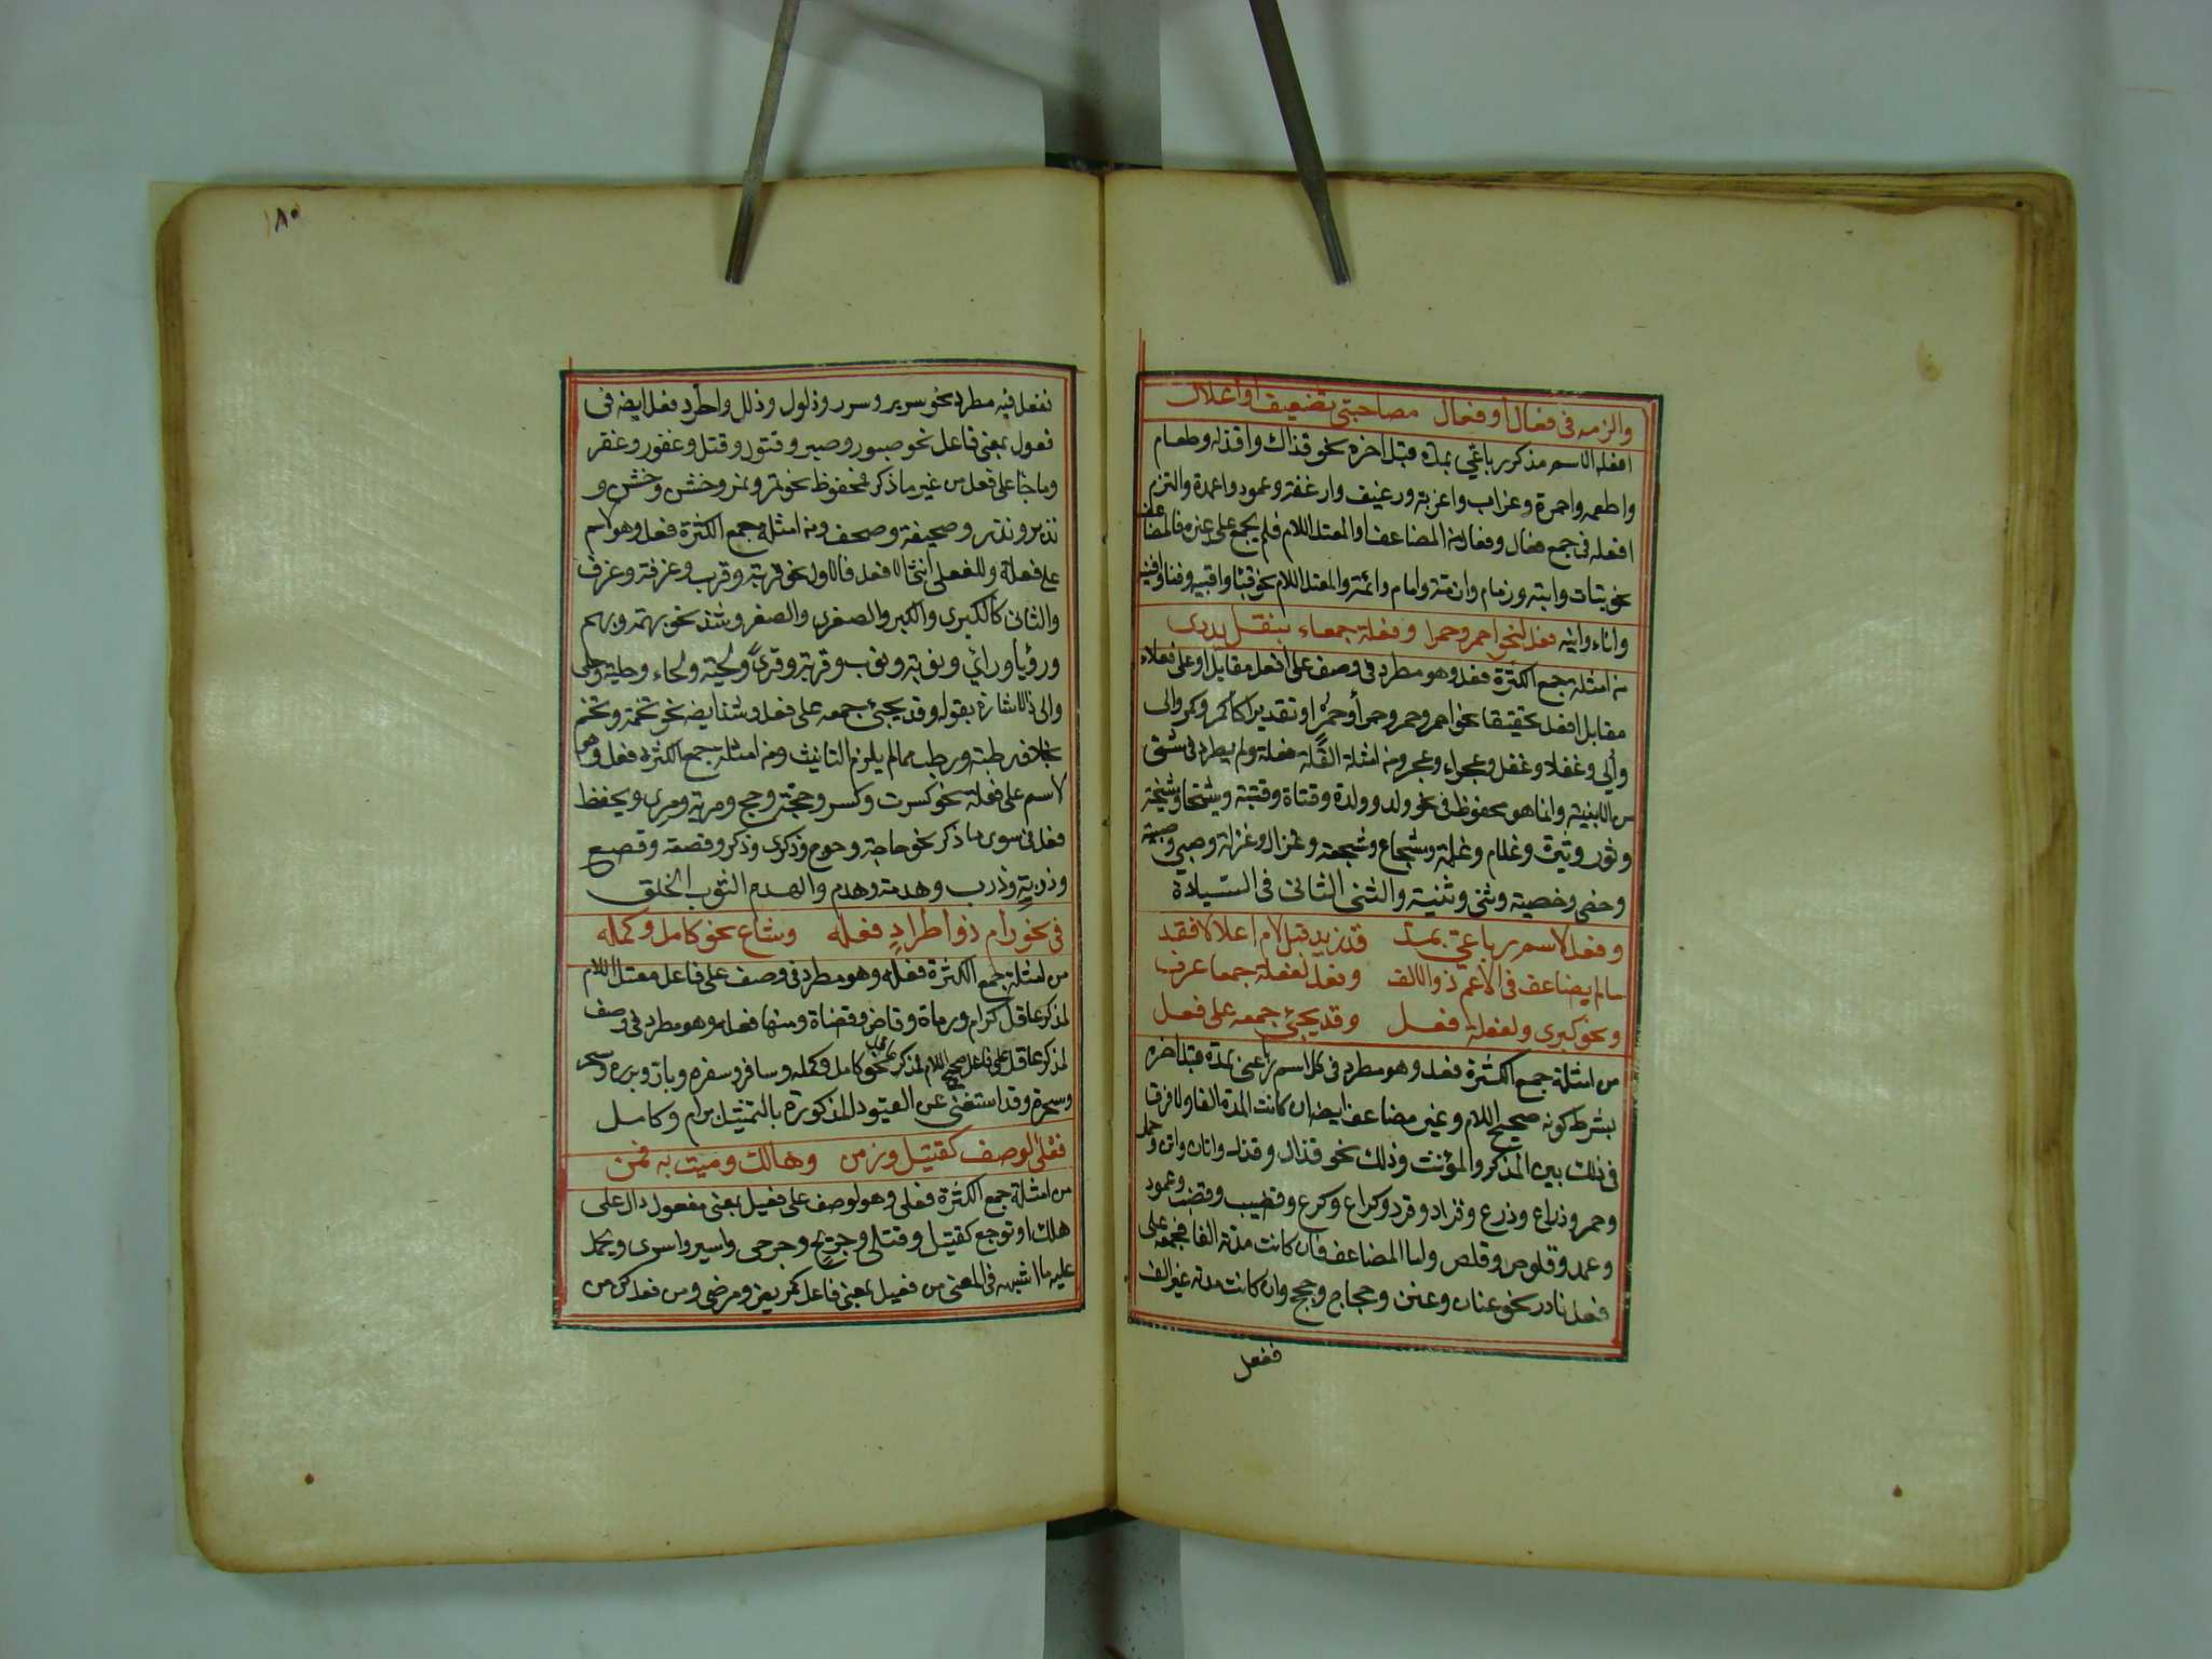 والزمه في فعال أو فعال مصاحبي تضعيف أو اعلال
افعله لاسم مذكر رباعي بمدة قبل اخره نحو قذال واقذله وطعام
واطعمه واحمرة وغراب واغربة ورغيف وارغفة وعمود واعمدة والتزم
افعله في جمع فعال وفعال من المضاعف او المعتل اللام فلم يجمع على غيره فالمضاعف
نحو بتات وابتة وزمام وازمة وامام وائمة والمعتل اللام نحو قبا واقبيه وفنا وافنيه
واناء وانيه فعل لنحو احمر وحمرا وفعلة جمعاء بنقل يدري
من امثلة جمع الكثرة فعل وهو مطرد في وصف على افعل مقابل او على فعلاء
مقابل افعل تحقيقا نحو احمر وحمر وحمرا وحمر او تقديرا كاكمر وكمر والى
وألي وغفلا وغفل وعجراء وعجر ومن امثلة القلة فعلة ولم يطرد في شئ
من الابنية وانما هو محفوظ في نحو ولد وولدة وفتاة وفتية وشيخا وشيخة
وثور وثيرة وغلام وغلمة وشجاع وشجعة وغزال وغزلة وصبي وصبية
وخصي وخصية وثنى وثنية والثنى الثاني في السيادة
وفعل لاسم رباعي بمد قد زيد قبل لام اعلالا فقد
ما لم يضاعف في الاعم ذو الالف وفعل لفعلة جمعا عرف
ونحو كبرى ولفعلة فعل وقد يجئ جمعه على فعل
من امثلة جمع الكثرة فعل وهو مطرد في كل اسم رباعي بمدة قبل اخره
بشرط كونه صحيح اللام وغير مضاعف ايضا ان كانت المدة الفا ولا فرق
في ذلك بين المذكر والمؤنث وذلك نحو قذال وقذل واتان واتن وحمار
وحمر وذراع وذرع وقراد وقرد وكراع وكرع وقضيب وقضب وعمود
وعمد وقلوص وقلص واما المضاعف فان كانت مدته الفا فجمعه على
فعل نادر نحو عنان وعنن وحجاج وحجج وان كانت مدته غير الف
ففعل
١٨٠
ففعل فيه مطرد نحو سرير وسرر وذلول وذلل واطرد فعل ايضه في
فعول بمعنى فاعل نحو صبور وصبر وقتول وقتل وغفور وغفر
وما جا على فعل من غير ما ذكر فمحفوظ نحو نمر ونمر وخشن وخشن و
نذير ونذر وصحيفة وصحف ومن امثلة جمع الكثرة فعل وهو لاسم
على فعلة وللفعلى انثى الافعل فالاول نحو قربة وقرب وغرفة وغرف
والثاني كالكبرى والكبر والصغرى والصغر وشذ نحو بهمة وبهم
ورؤيا ورائ ونوبة ونوب وقرية وقرى ولحية ولحاء وحلية وحلى
والى ذلك اشارة بقوله وقد يجئ جمعه على فعل وشذ ايضه نحو تخمة وتخم
بخلاف رطبة ورطب مما لم يلزم التانيث ومن امثلة جمع الكثرة فعل وهو
لاسم على فعلة نحو كسرت وكسر وحجة وحجج ومرية ومرى ويحفظ
فعل في سوى ما ذكر نحو حاجة وحوج وذكرى وذكر وقصعة وقصع
وذربة وذرب وهدمة وهدم والهدم الثوب الخلق
في نحو رام ذو اطراد فعله وشاع نحو كامل وكمله
من امثلة جمع الكثرة فعله وهو مطرد في وصف على فاعل معتل اللام
لمذكر عاقل كرام ورماة وقاض وقضاة ومنها فعله وهو مطرد في وصف
لمذكر عاقل على فاعل صحيح اللام لمذكر نحو كامل وكمله وسافر وسفره وبار وبرره وسحر
وسحرة وقد استغنى عن القيود المذكورة بالتمثيل برام وكامل
فعلى لوصف كقتيل وزمن وهالك وميت به قمن
من امثلة جمع الكثرة فعلى وهو لوصف على فعيل بمعنى مفعول دال على
هلك او توجع كقتيل وقتلى وجريح وجرحى واسير واسرى ويحمل
عليه ما اشبهه في المعنى من فعيل بمعنى فاعل كمريض ومرضى ومن فعل كزمن